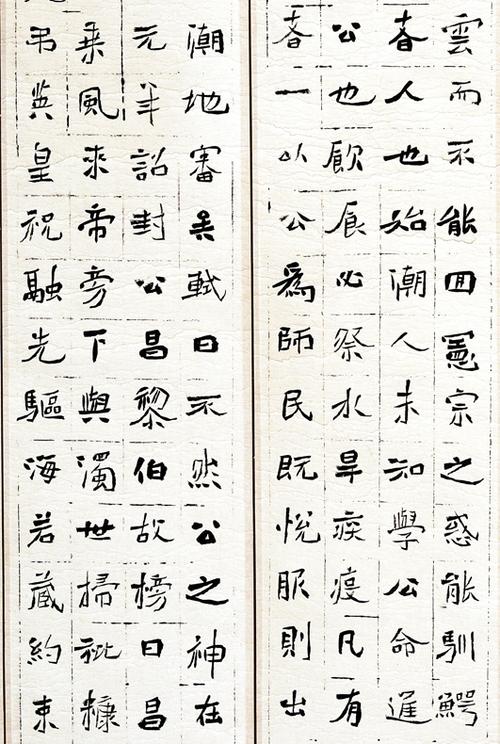 雲而不能囬憲宗之惑能馴鰐
者人也始潮人未知學公命進
公也飲食必祭水旱疾疫凡有
者一以公爲師民既悅服則出
潮地審矣軾曰不然公之神在
元年詔封公昌黎伯故榜曰昌
乘風來帝旁下與濁世掃秕糠
吊英皇祝融先驅海若藏約束